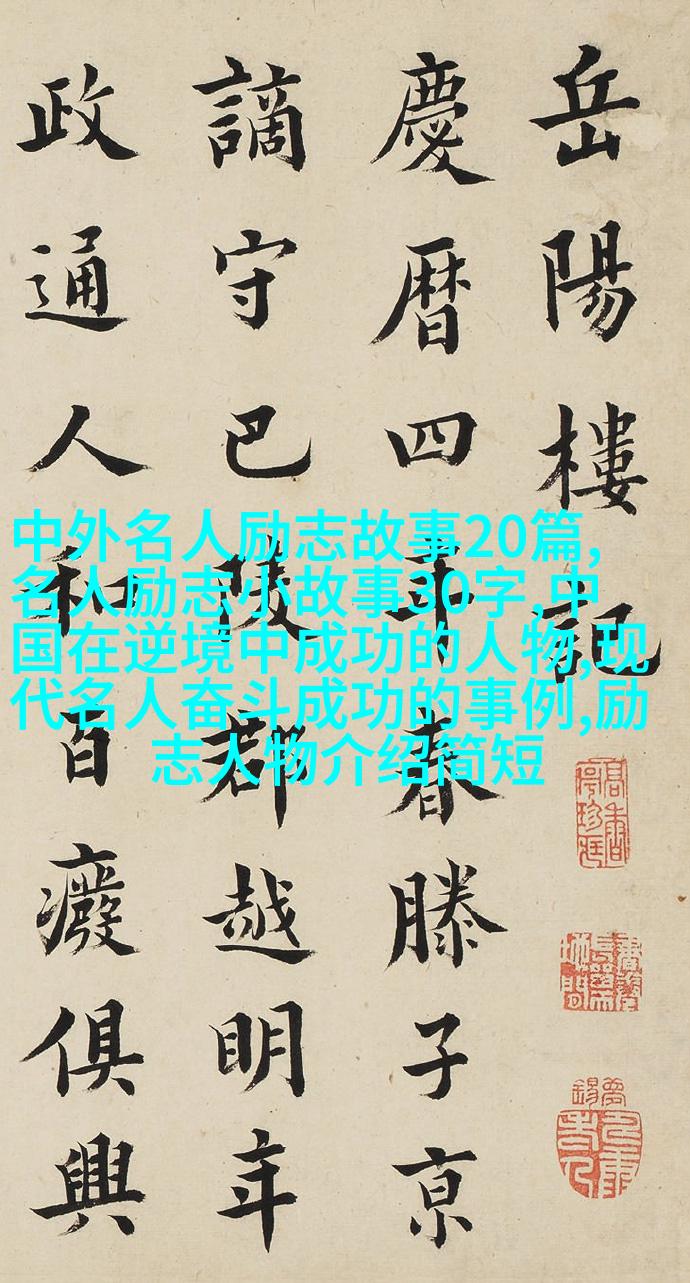 岳陽樓記
慶暦四年春滕子京
謫守巴陵郡越明年
政通人和百癈俱興
中外名人励志故事20篇,
名人励志小故事30字,中
国在逆境中成功的人物,现
代名人奋斗成功的事例,励
志人物介绍简短